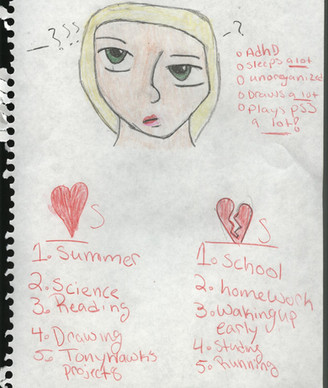 _???
_?
o AdhD
o sleeps a lot
o unorganized
o Draws a lot
o plays ps3
a lot!
S
1. Summer
2. Science
3. Reading
4. Drawing
5. Tony Hawks
project 8
S
1. School
2. homework
3. Waking up
early
4. Studing
5. Running